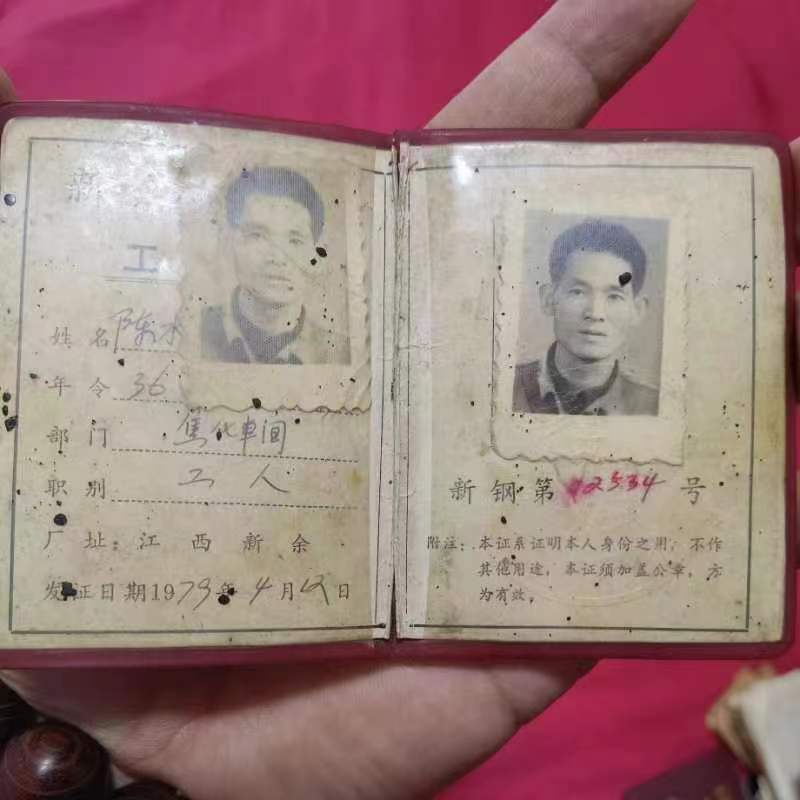 新
工
姓名 陈水
年令 36
部门 焦化车间
职别 工人
厂址：江西新余
发证日期1979年4月 日
新钢第 2534号
附注：本证系证明本人身份之用，不作
其他用途，本证须加盖公章，方
为有效。